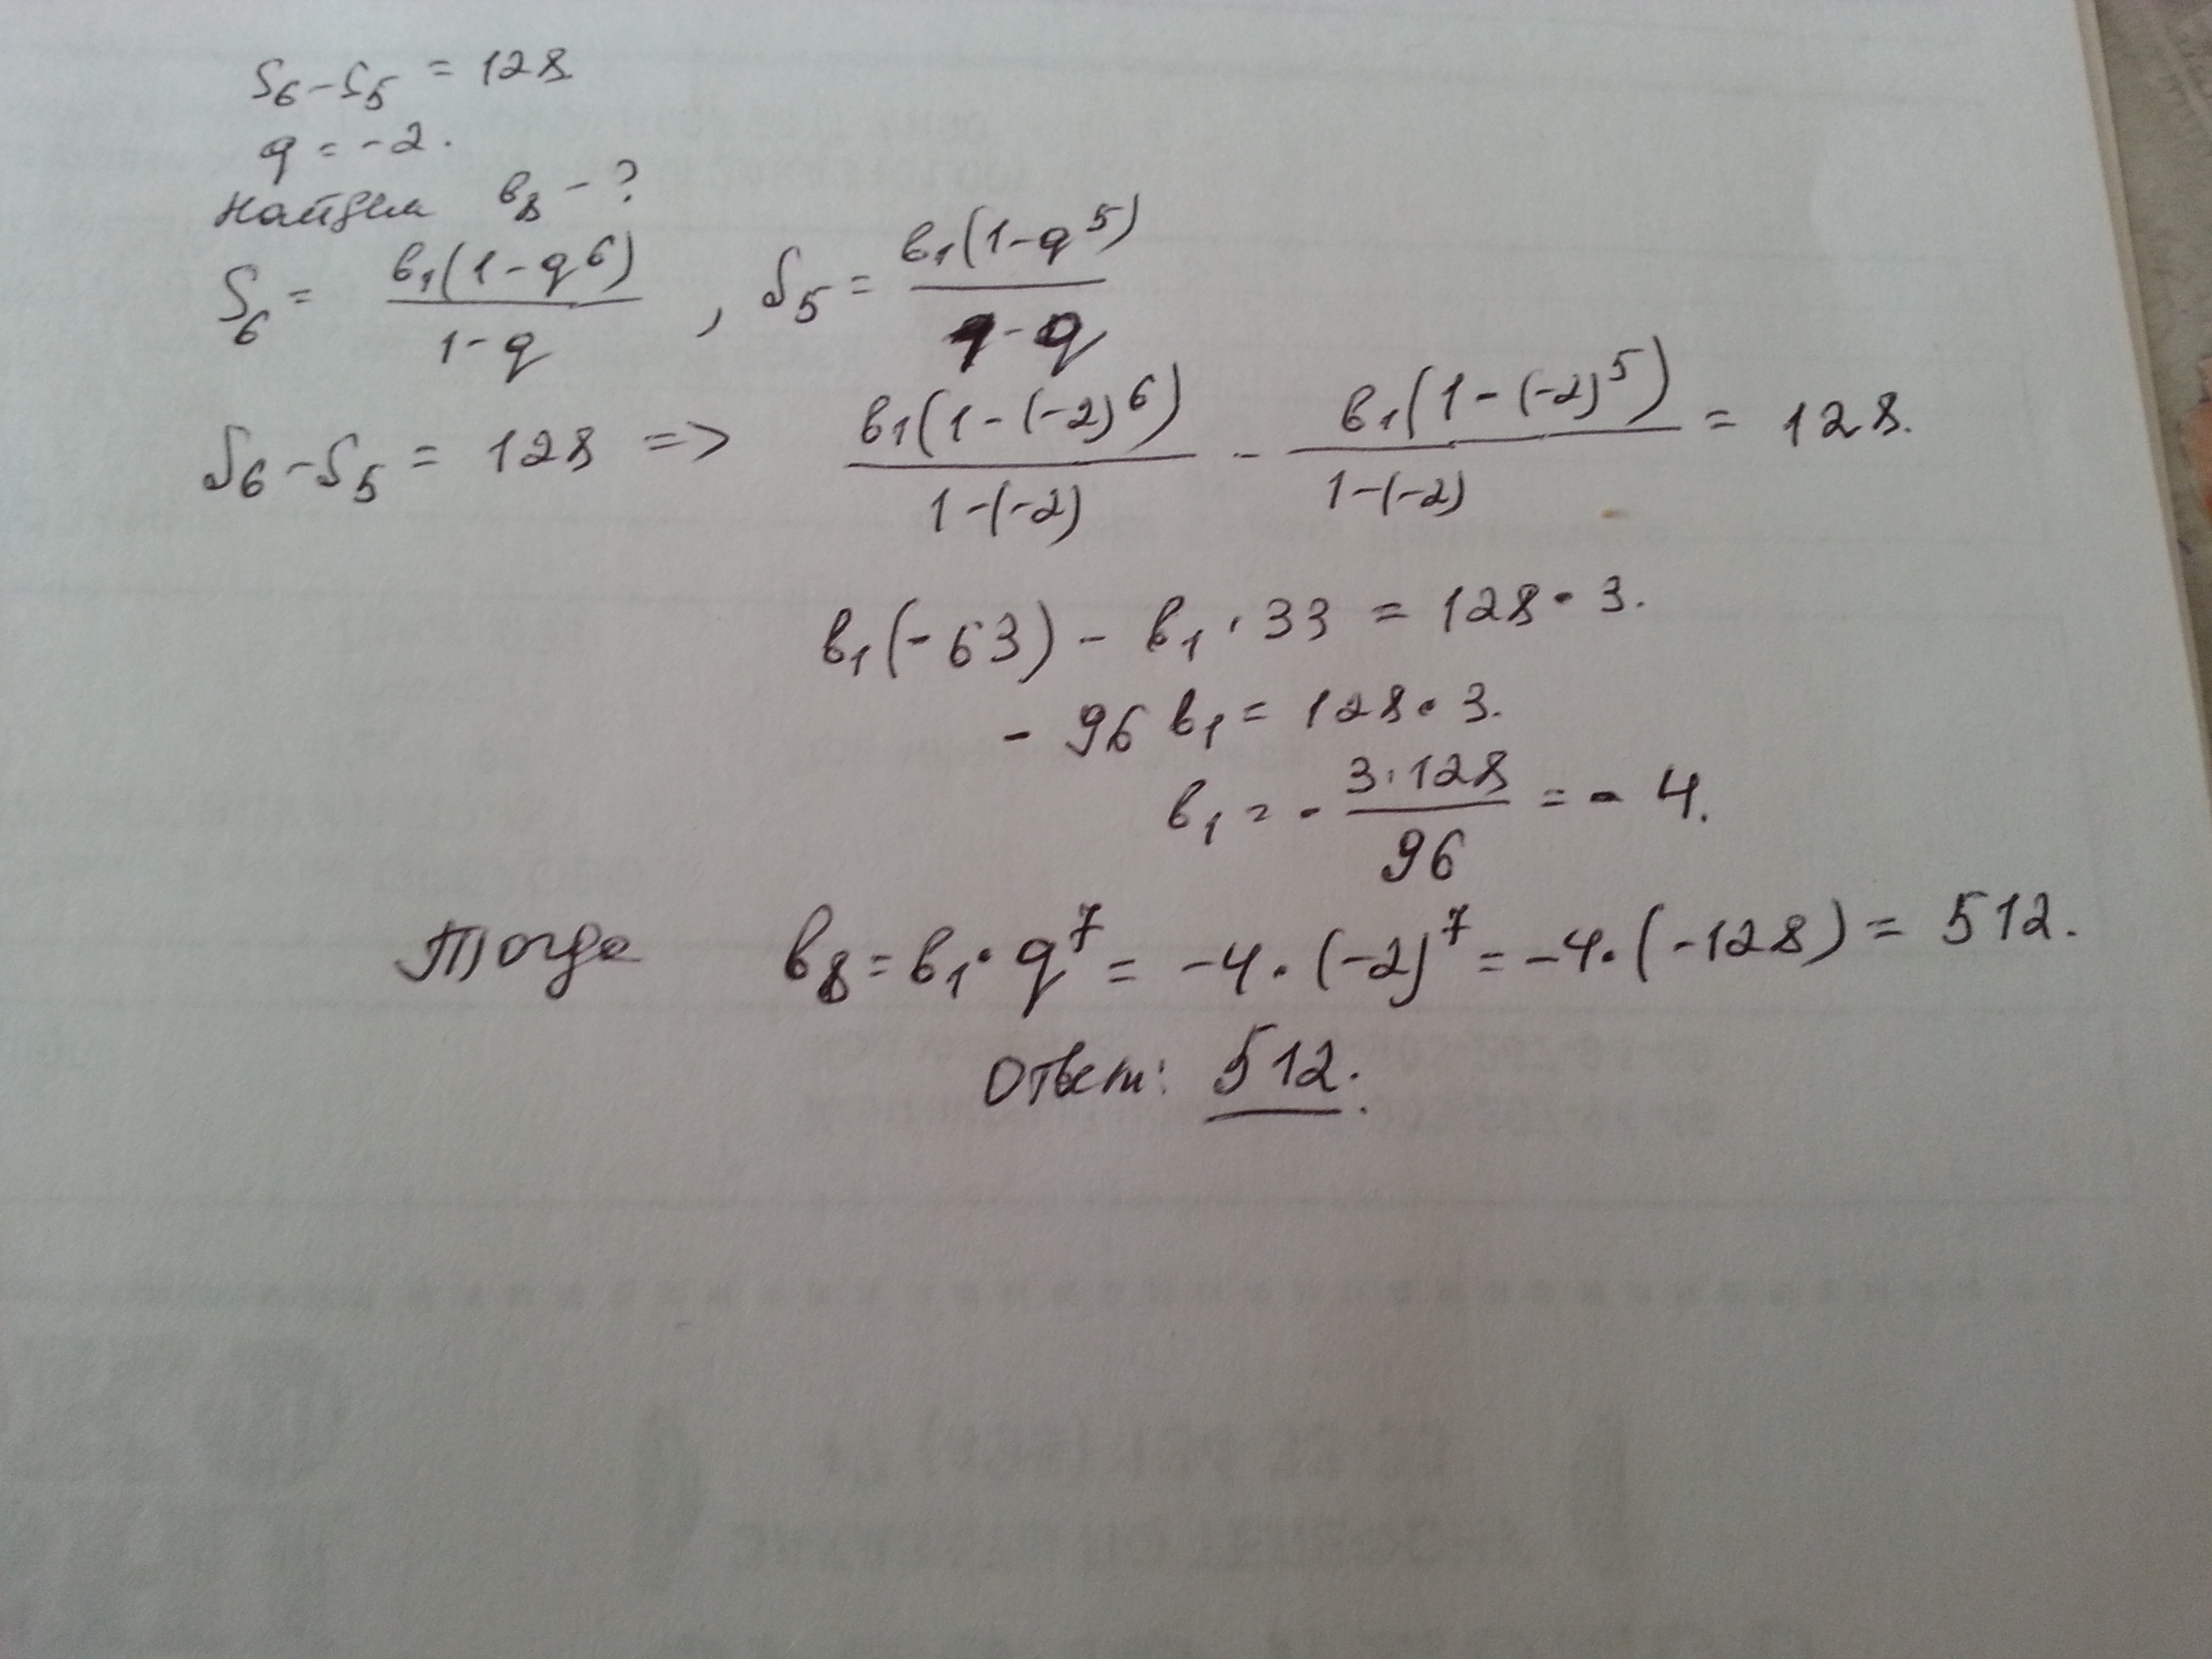 S₆-S₅ = 128
q = -2.
Найдем в₈ - ?
S₆ = в₁(1-q⁶)/1-q , S₅ = в₁(1-q⁵)/1-q
S₆-S₅ = 128 => в₁(1-(-2)⁶)/1-(-2) - в₁(1-(-2)⁵)/1-(-2) = 128.
в₁(-63) - в₁·33 = 128·3.
- 96 в₁ = 128·3.
в₁ = - 3·128/96 = - 4.
Тогда в₈ = в₁·q⁷ = -4·(-2)⁷ = -4·(-128) = 512.
Ответ: 512.